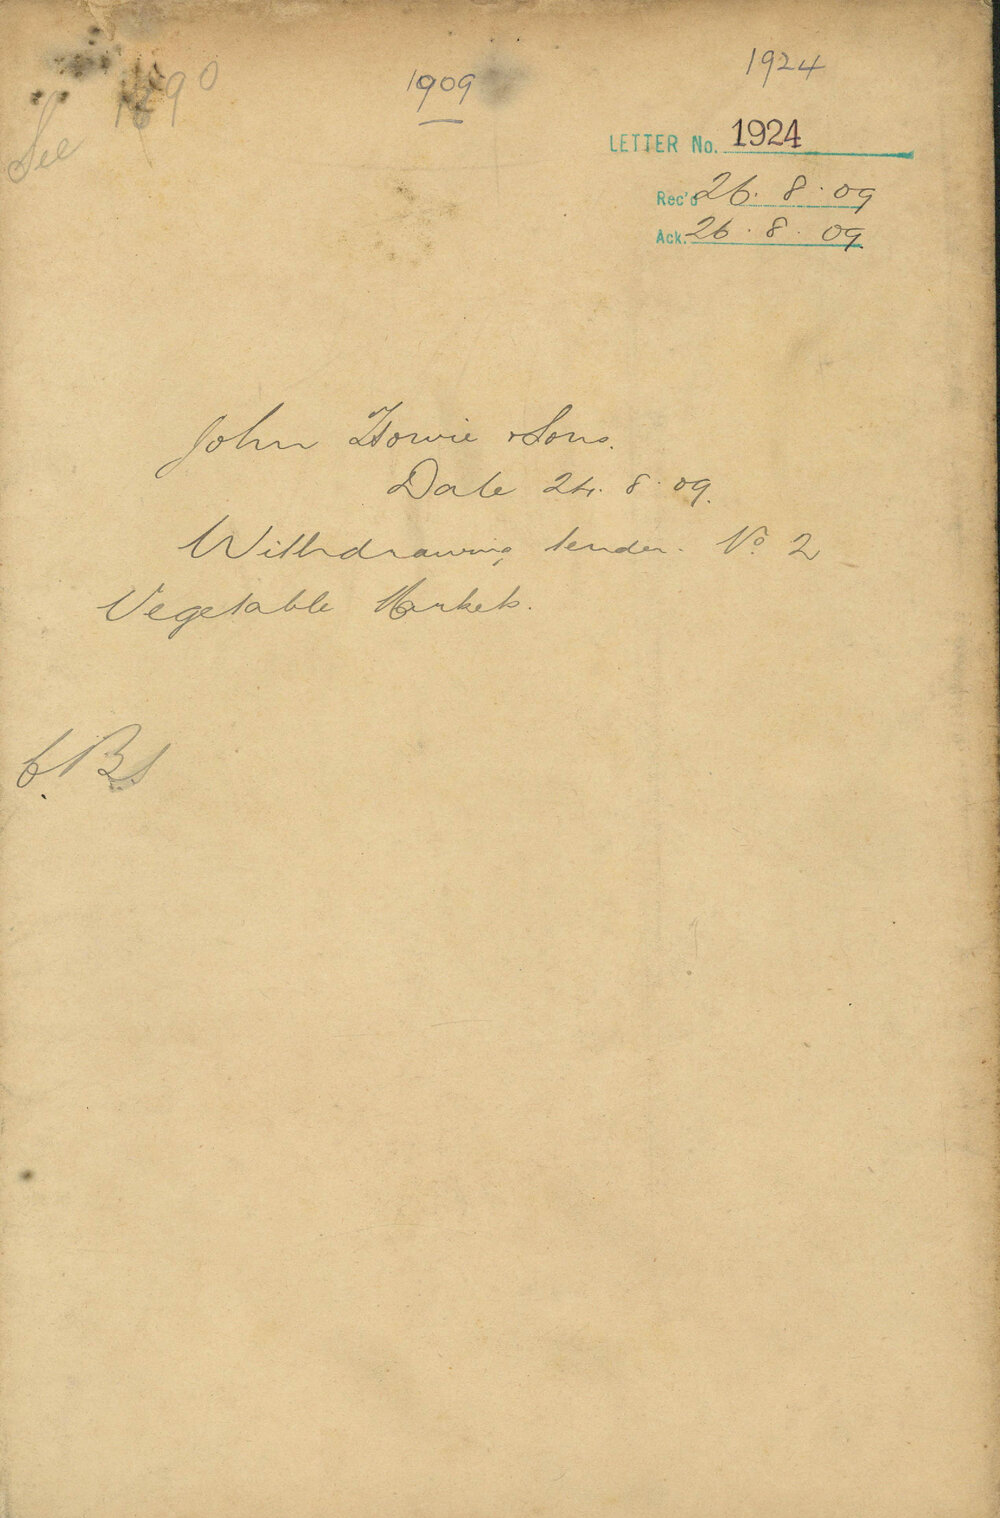 See 1890
1909
1924
LETTER No. 1924
Rec'd 26. 8. 09
Ack. 26. 8. 09.
John Howie & Sons.
Date 24. 8. 09.
Withdrawing tender. No 2
Vegetable Markets.